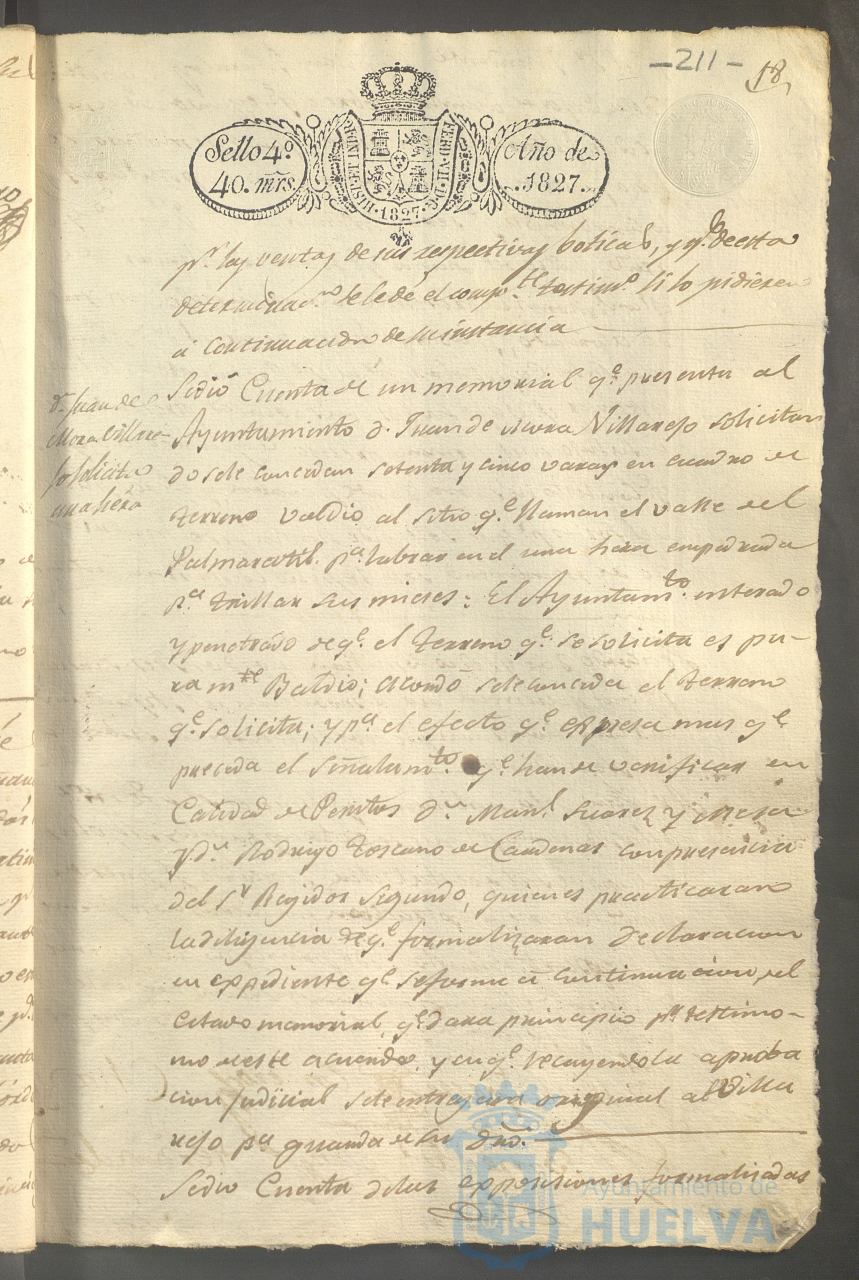 -211-
18,
Sello 4º
40. mrs.
HISP. ET IND. R.
FERD. VII. D. G.
·1827·
Año de
1827.
pr. las ventas de sus respectivas boticas, y qe. de esta
determinacn. se le dé el compte. testimo. si lo pidieren
á continuacion de su instancia
Dn. Juan de
Mora Villare-
jo solicita
una hera
Se dió Cuenta de un memorial qe. presenta al
Ayuntamiento d. Juan de mora Villarejo solicitan
do se le concedan setenta y cinco varas en cuadro de
terreno valdio al sitio qe. llaman el valle del
pa. labrar en el una hera empedrada
pa. trillar sus mieses: El Ayuntamto. enterado
y penetrado de qe. el terreno qe. se solicita es pu-
ra mte. Baldio; acordó se le conceda el terreno
qe. solicita; y pa. el efecto qe. expresa mas qe.
preceda el señalamto. qe. han de verificar en
Calidad de Peritos Dn. Manl. Suarez y
y Dn. Rodrigo Toscano de Cardenas con presencia
del Sr. Regidor segundo, quienes practicaran
la diligencia de qe. formalizaran declaracion
en expediente qe. se forme á continuacion, del
citado memorial, qe. dara principio pr. testimo-
nio de este acuerdo, y en qe. recayendo la aproba
cion judicial se le entregara original al Villa
rejo pa. guarda de su dro.
Se dio Cuenta de las exposiciones formalizadas
Ayuntamiento de
HUELVA